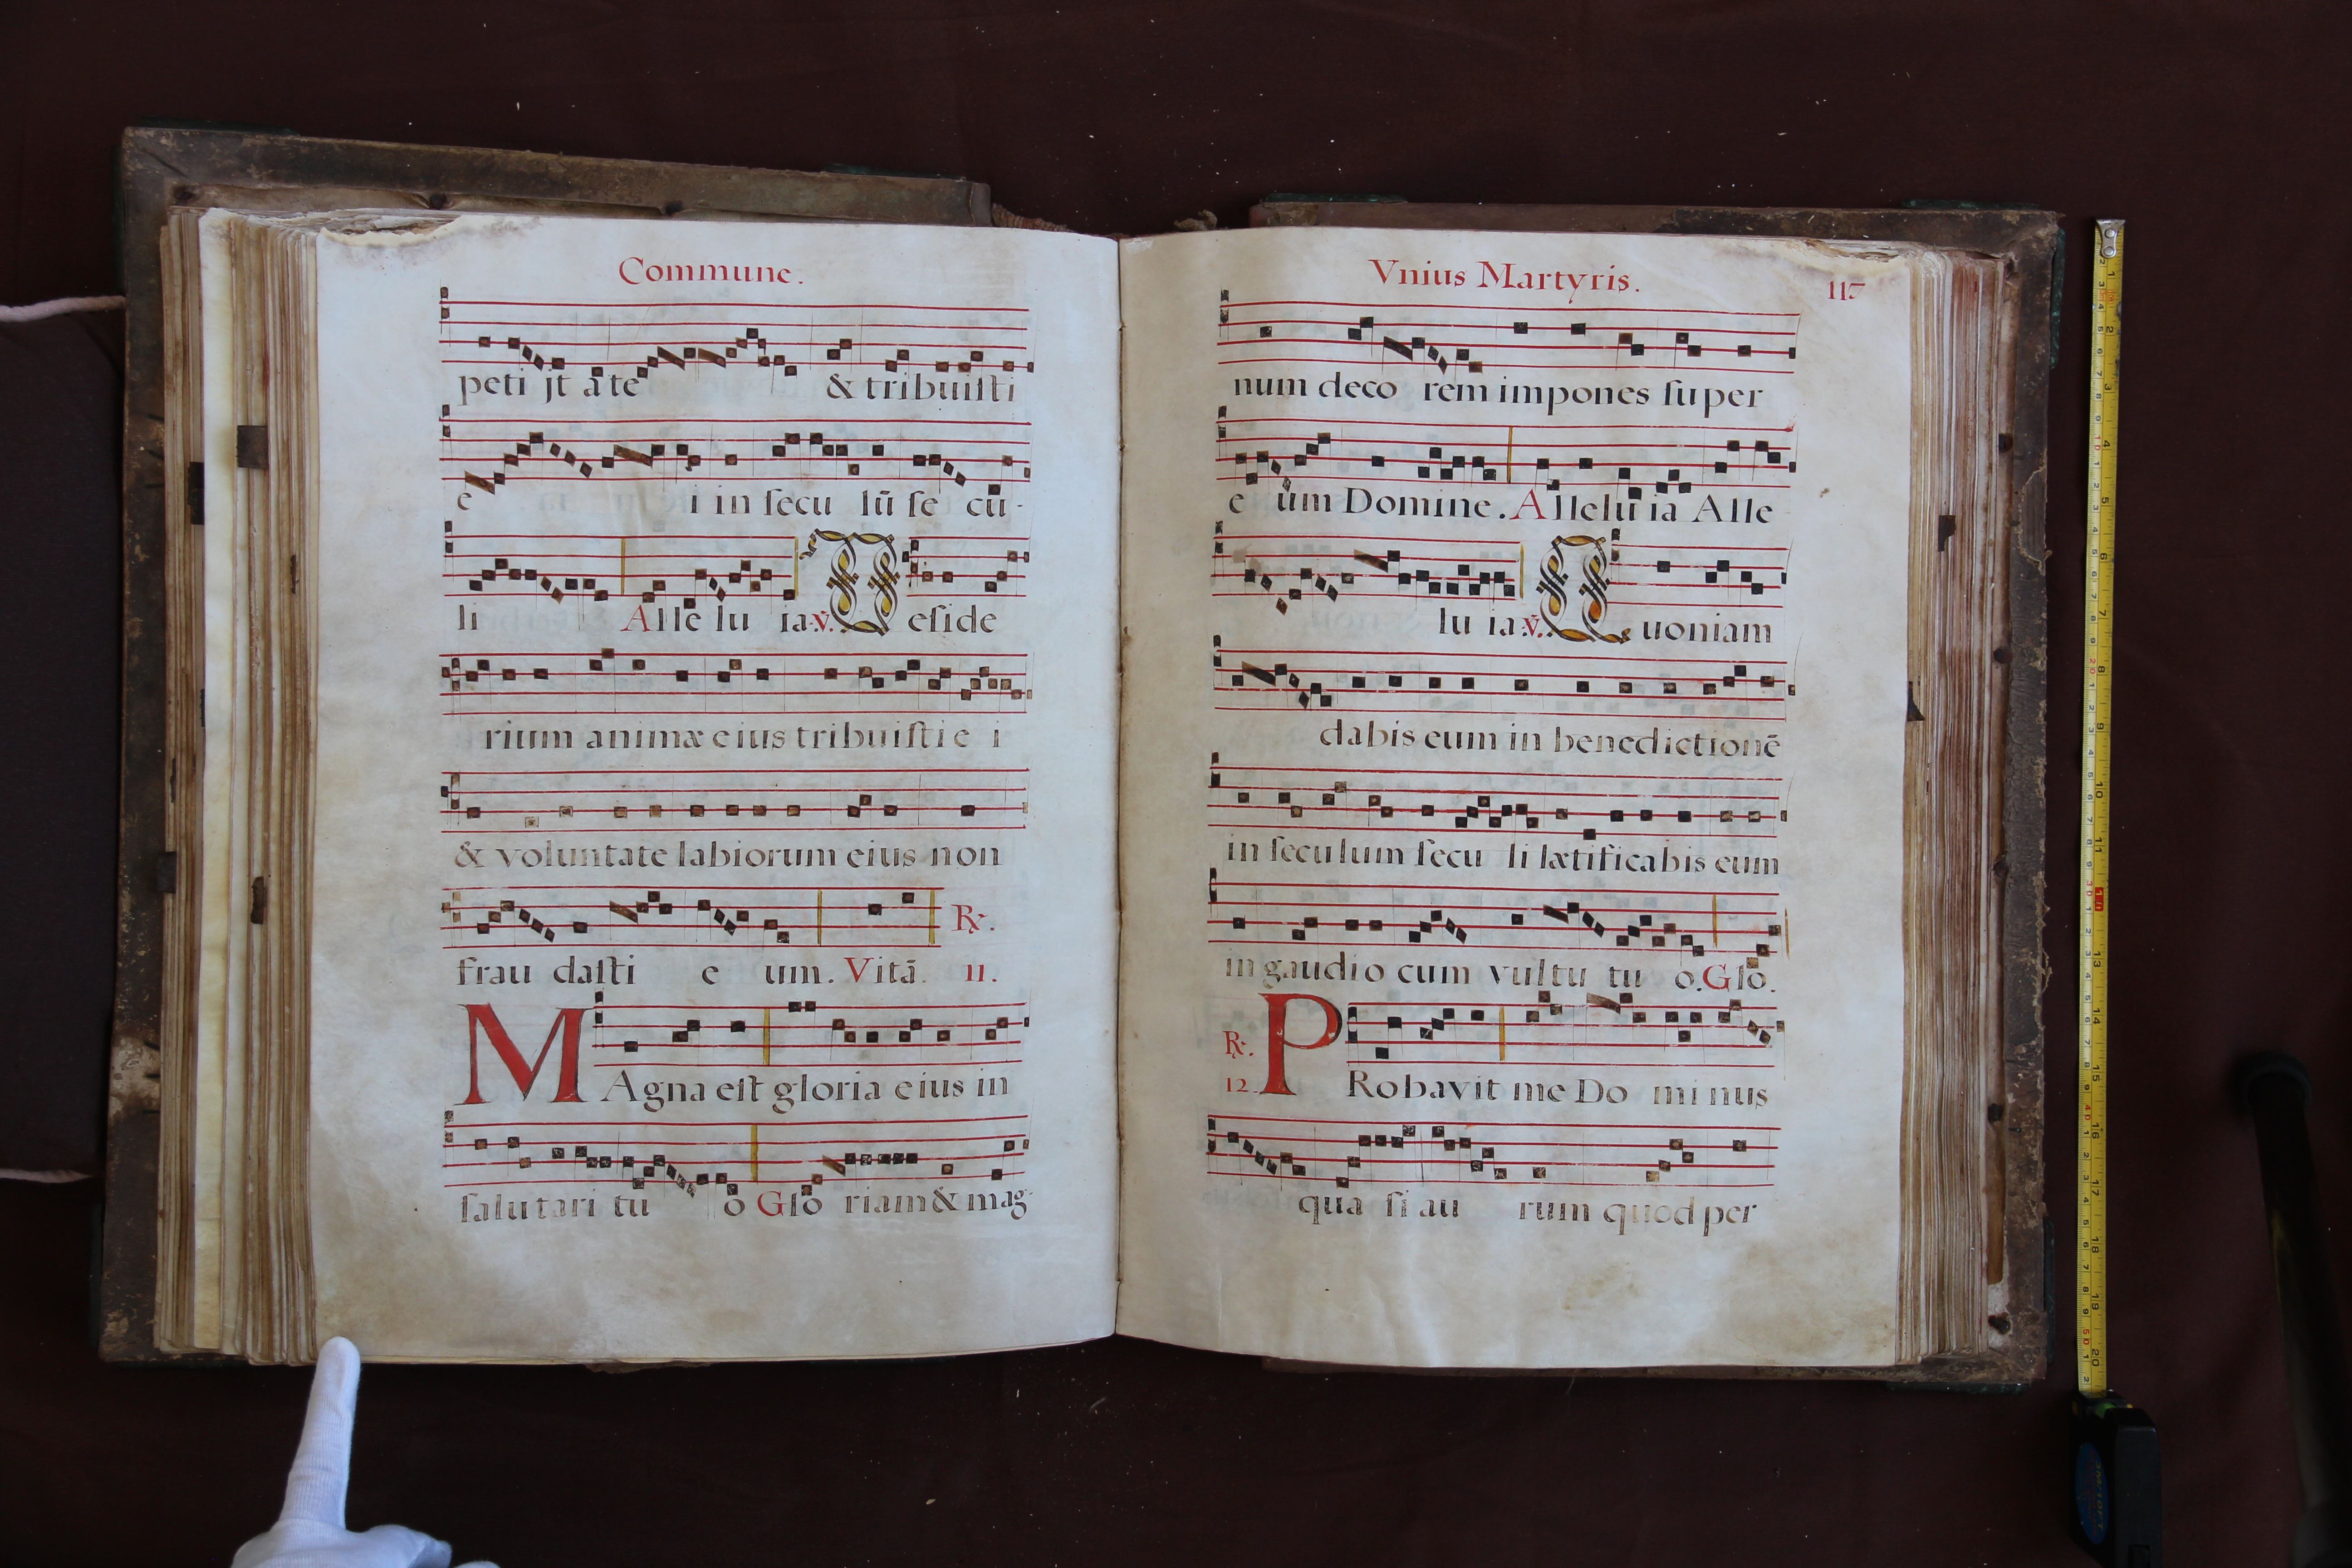 Commune.
peti jt a te & tribuisti
e i in secu lū se cu-
li Alle lu ia. ℣. Deside
rium animæ eius tribuisti e i
& voluntate labiorum eius non
frau dasti e um. Vitā. 11.
℞.
MAgna est gloria eius in
salutari tu o Glo riam & mag-
Vnius Martyris. 117
num deco rem impones super
e um Domine. Allelu ia Alle
lu ia. ℣. Quoniam
dabis eum in benedictionē
in seculum secu li lætificabis eum
in gaudio cum vultu tu o. Glo.
℞. 12. PRobavit me Do mi nus
qua si au rum quod per